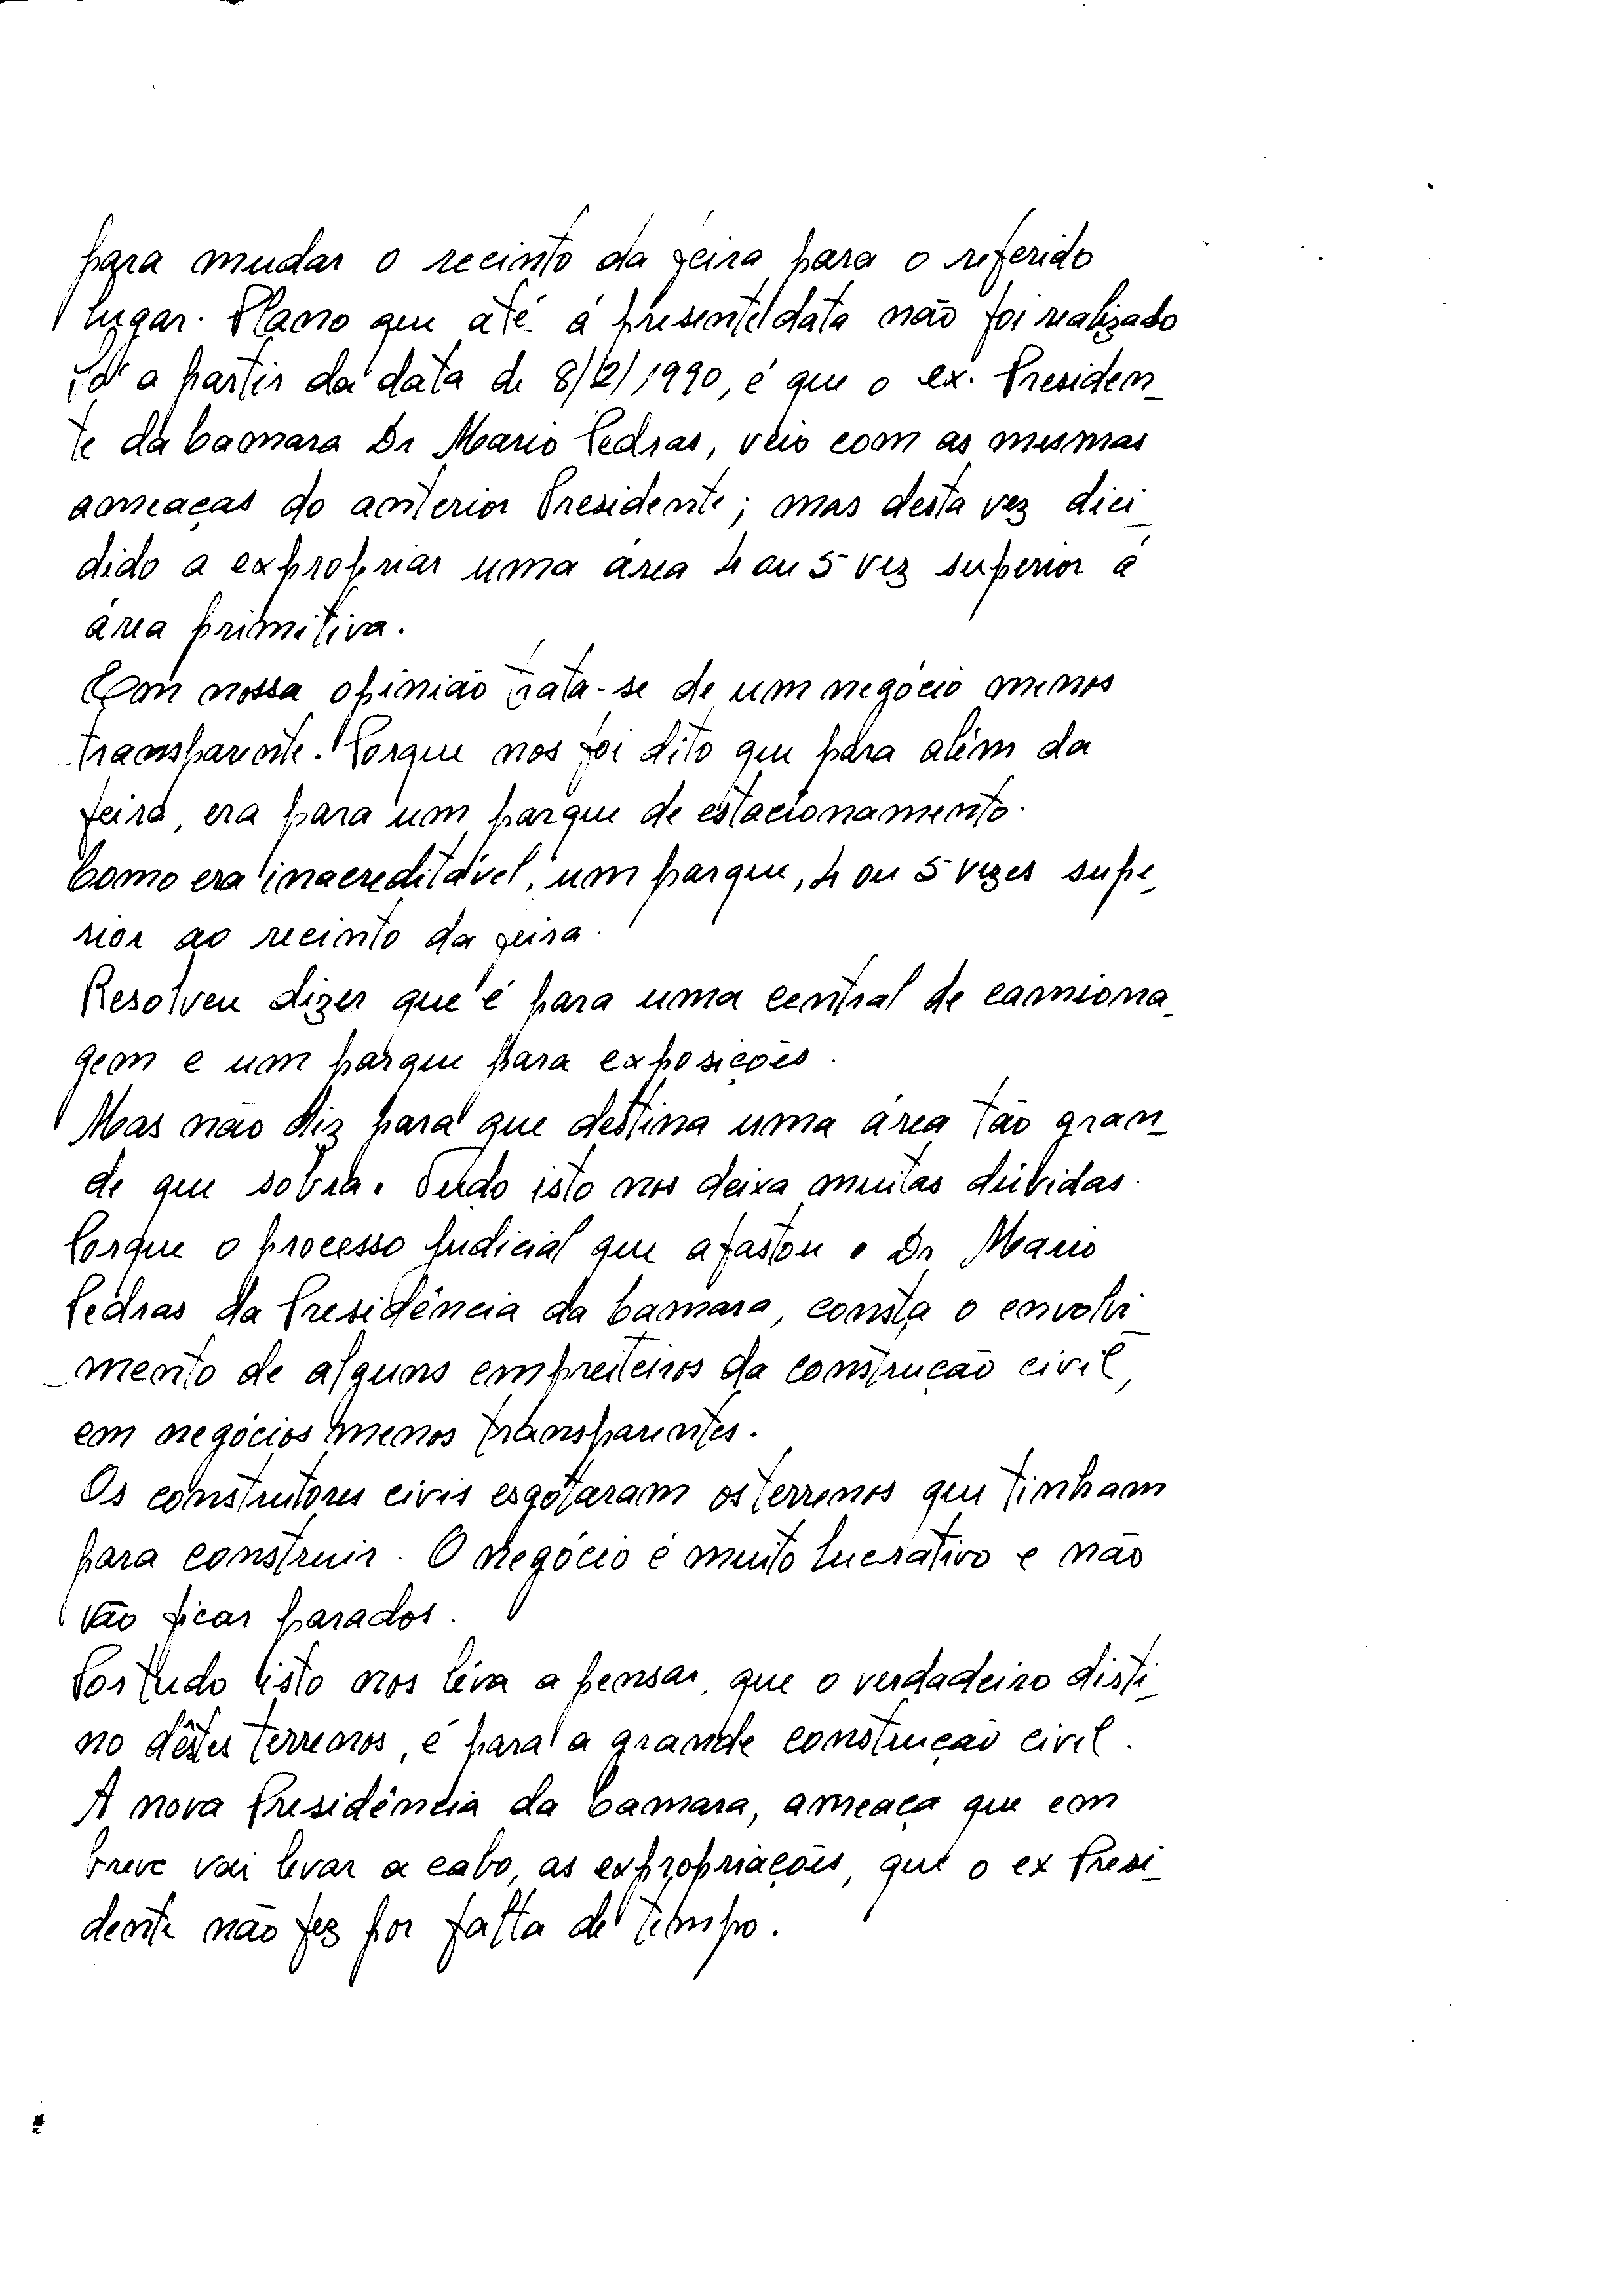 para mudar o recinto da feira para o referido
lugar. Plano que até á presente data não foi realizado
Só a partir da data de 8/12/1990, é que o ex. Presiden_
te da Camara Dr Mario Pedras, veio com as mesmas
ameaças do anterior Presidente; mas desta vez dici_
dido a expropriar uma área 4 ou 5 vez superior á
área primitiva.
Em nossa opinião trata-se de um negócio menos
transparente. Porque nos foi dito que para além da
feira, era para um parque de estacionamento.
Como era inacreditável, um parque, 4 ou 5 vezes supe_
rior ao recinto da feira.
Resolveu dizer que é para uma central de camiona_
gem e um parque para exposições.
Mas não diz para que destina uma área tão gran_
de que sobra. Tudo isto nos deixa muitas dúvidas.
Porque o processo Judicial que afastou o Dr Mario
Pedras da Presidência da Camara, consta o envolvi_
mento de alguns empreiteiros da construção civil,
em negócios menos transparentes.
Os construtores civis esgotaram os terrenos que tinham
para construir. O negócio é muito lucrativo e não
vão ficar parados.
Por tudo isto nos léva a pensar, que o verdadeiro disti_
no dêstes terrenos, é para a grande construção civil.
A nova Presidência da Camara, ameaça que em
breve vai levar a cabo, as expropriações, que o ex Presi_
dente não fez por falta de tempo.